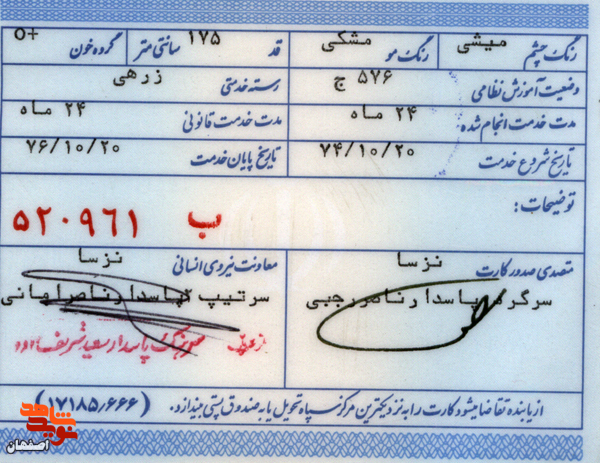 رنگ چشم میشی رنگ مو مشکی قد ۱۷۵ سانتی متر گروه خون O+
وضعیت آموزش نظامی ۵۷۶ ج رسته خدمتی زرهی
مدت خدمت انجام شده ۲۴ ماه مدت خدمت قانونی ۲۴ ماه
تاریخ شروع خدمت ۷۴/۱۰/۲۰ تاریخ پایان خدمت ۷۶/۱۰/۲۰
توضیحات:
ب ۵۲۰۹۶۱
متصدی صدور کارت نزسا
سرگرد پاسدار ناصر رجبی
معاونت نیروی انسانی نزسا
سرتیپ ۲ پاسدار ناصر
از طرف سرهنگ پاسدار سعید شریف
از یابنده تقاضا میشود کارت را به نزدیکترین مرکز سپاه تحویل یا به صندوق پستی بیندازد. (۱۷۱۸۵/۶۶۶)
نوید شاهد
اصفهان